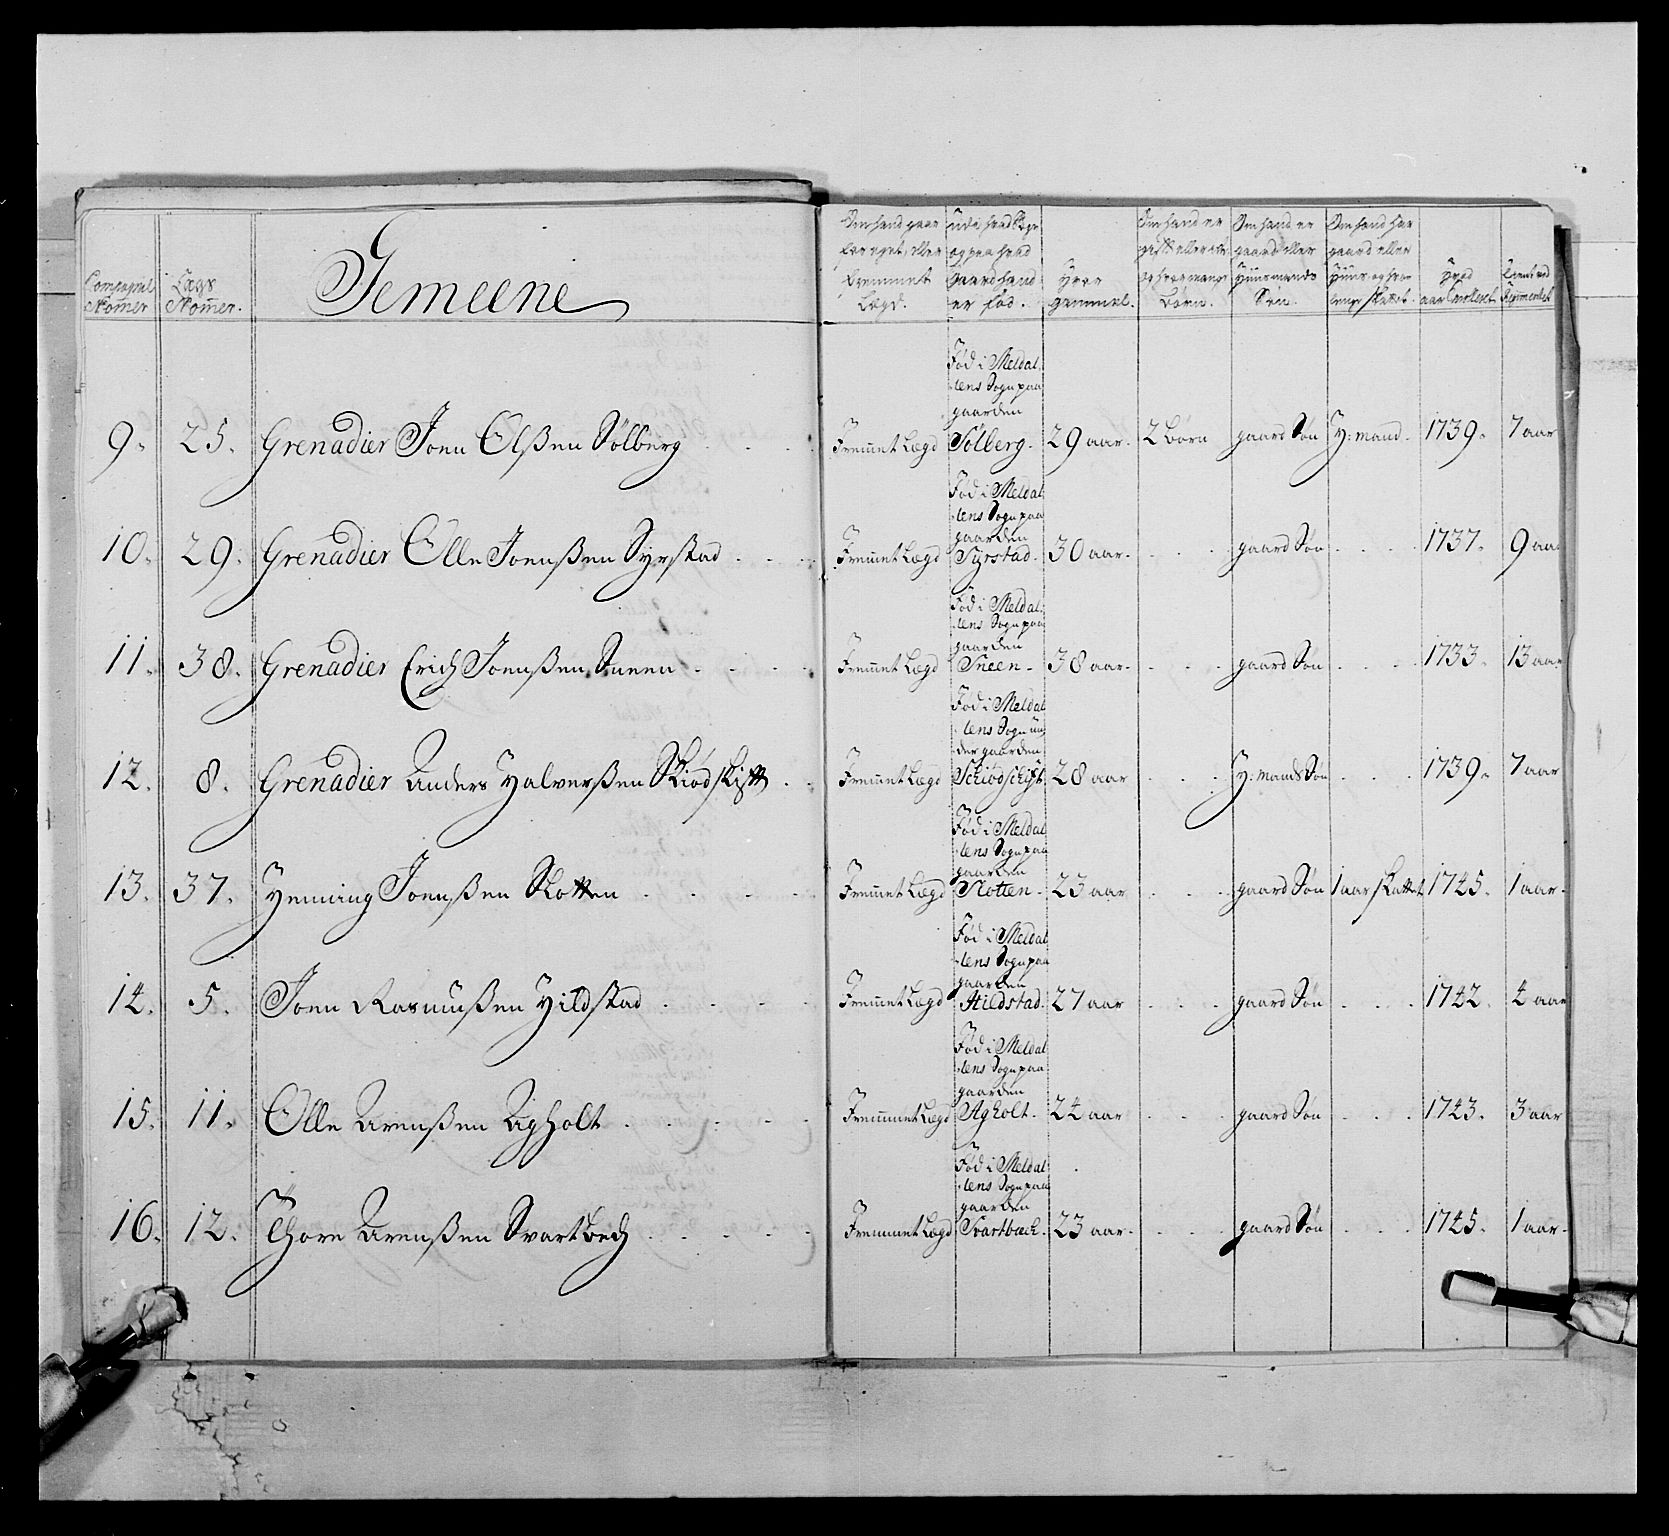 Compagnie Nomer
Lægs Nomer.
Gemeene
Om hand gaar for eget, eller fremmet Lægd.
og paa hvad Gaard hand er fød.
Hvor gammel.
Om hand er gift eller og hvor mange Børn.
Om hand er gaard eller Huusmands Søn.
Om hand har gaard eller Huus, og hvor lenge skattet.
Hvad aar Enrolleret
Tient ved Regimentet
9. 25. Grenadier Joen Olßen Sølberg Fremmet Lægd Fød i Meldal-lens Sogn paa gaarden Sølberg. 29 aar. 2 Børn gaard Søn H: mand. 1739. 7 aar
10. 29. Grenadier Olle Joenßen Syrstad Fremmet Lægd Fød i Meldal-lens Sogn paa gaarden Syrstad. 30 aar. gaard Søn 1737. 9 aar
11. 38. Grenadier Erich Joenßen Sneen Fremmet Lægd Fød i Meldal-lens Sogn paa gaarden Sneen. 38 aar. gaard Søn 1733. 13 aar
12. 8. Grenadier Anders Halverßen Skiødskift Fremmet Lægd Fød i Meldal-lens Sogn un-der gaarden Schiødschift. 28 aar H: mands Søn 1739. 7 aar
13. 37. Henning Joenßen Slotten Fremmet Lægd Fød i Meldal-lens Sogn paa gaarden Slotten. 23 aar gaard Søn 1 aar skattet 1745. 1 aar.
14. 5. Joen Rasmußen Hildstad Fremmet Lægd Fød i Meldal-lens Sogn paa gaarden Hildstad. 27 aar gaard Søn 1742. 4 aar
15. 11. Olle Arenßen Agholt Fremmet Lægd Fød i Meldal-lens Sogn paa gaarden Agholt. 24 aar gaard Søn 1743. 3 aar
16. 12. Thore Arenßen Svartbech Fremmet Lægd Fød i Meldal-lens Sogn paa gaarden Svartbæch. 23 aar. gaard Søn 1745. 1 aar.